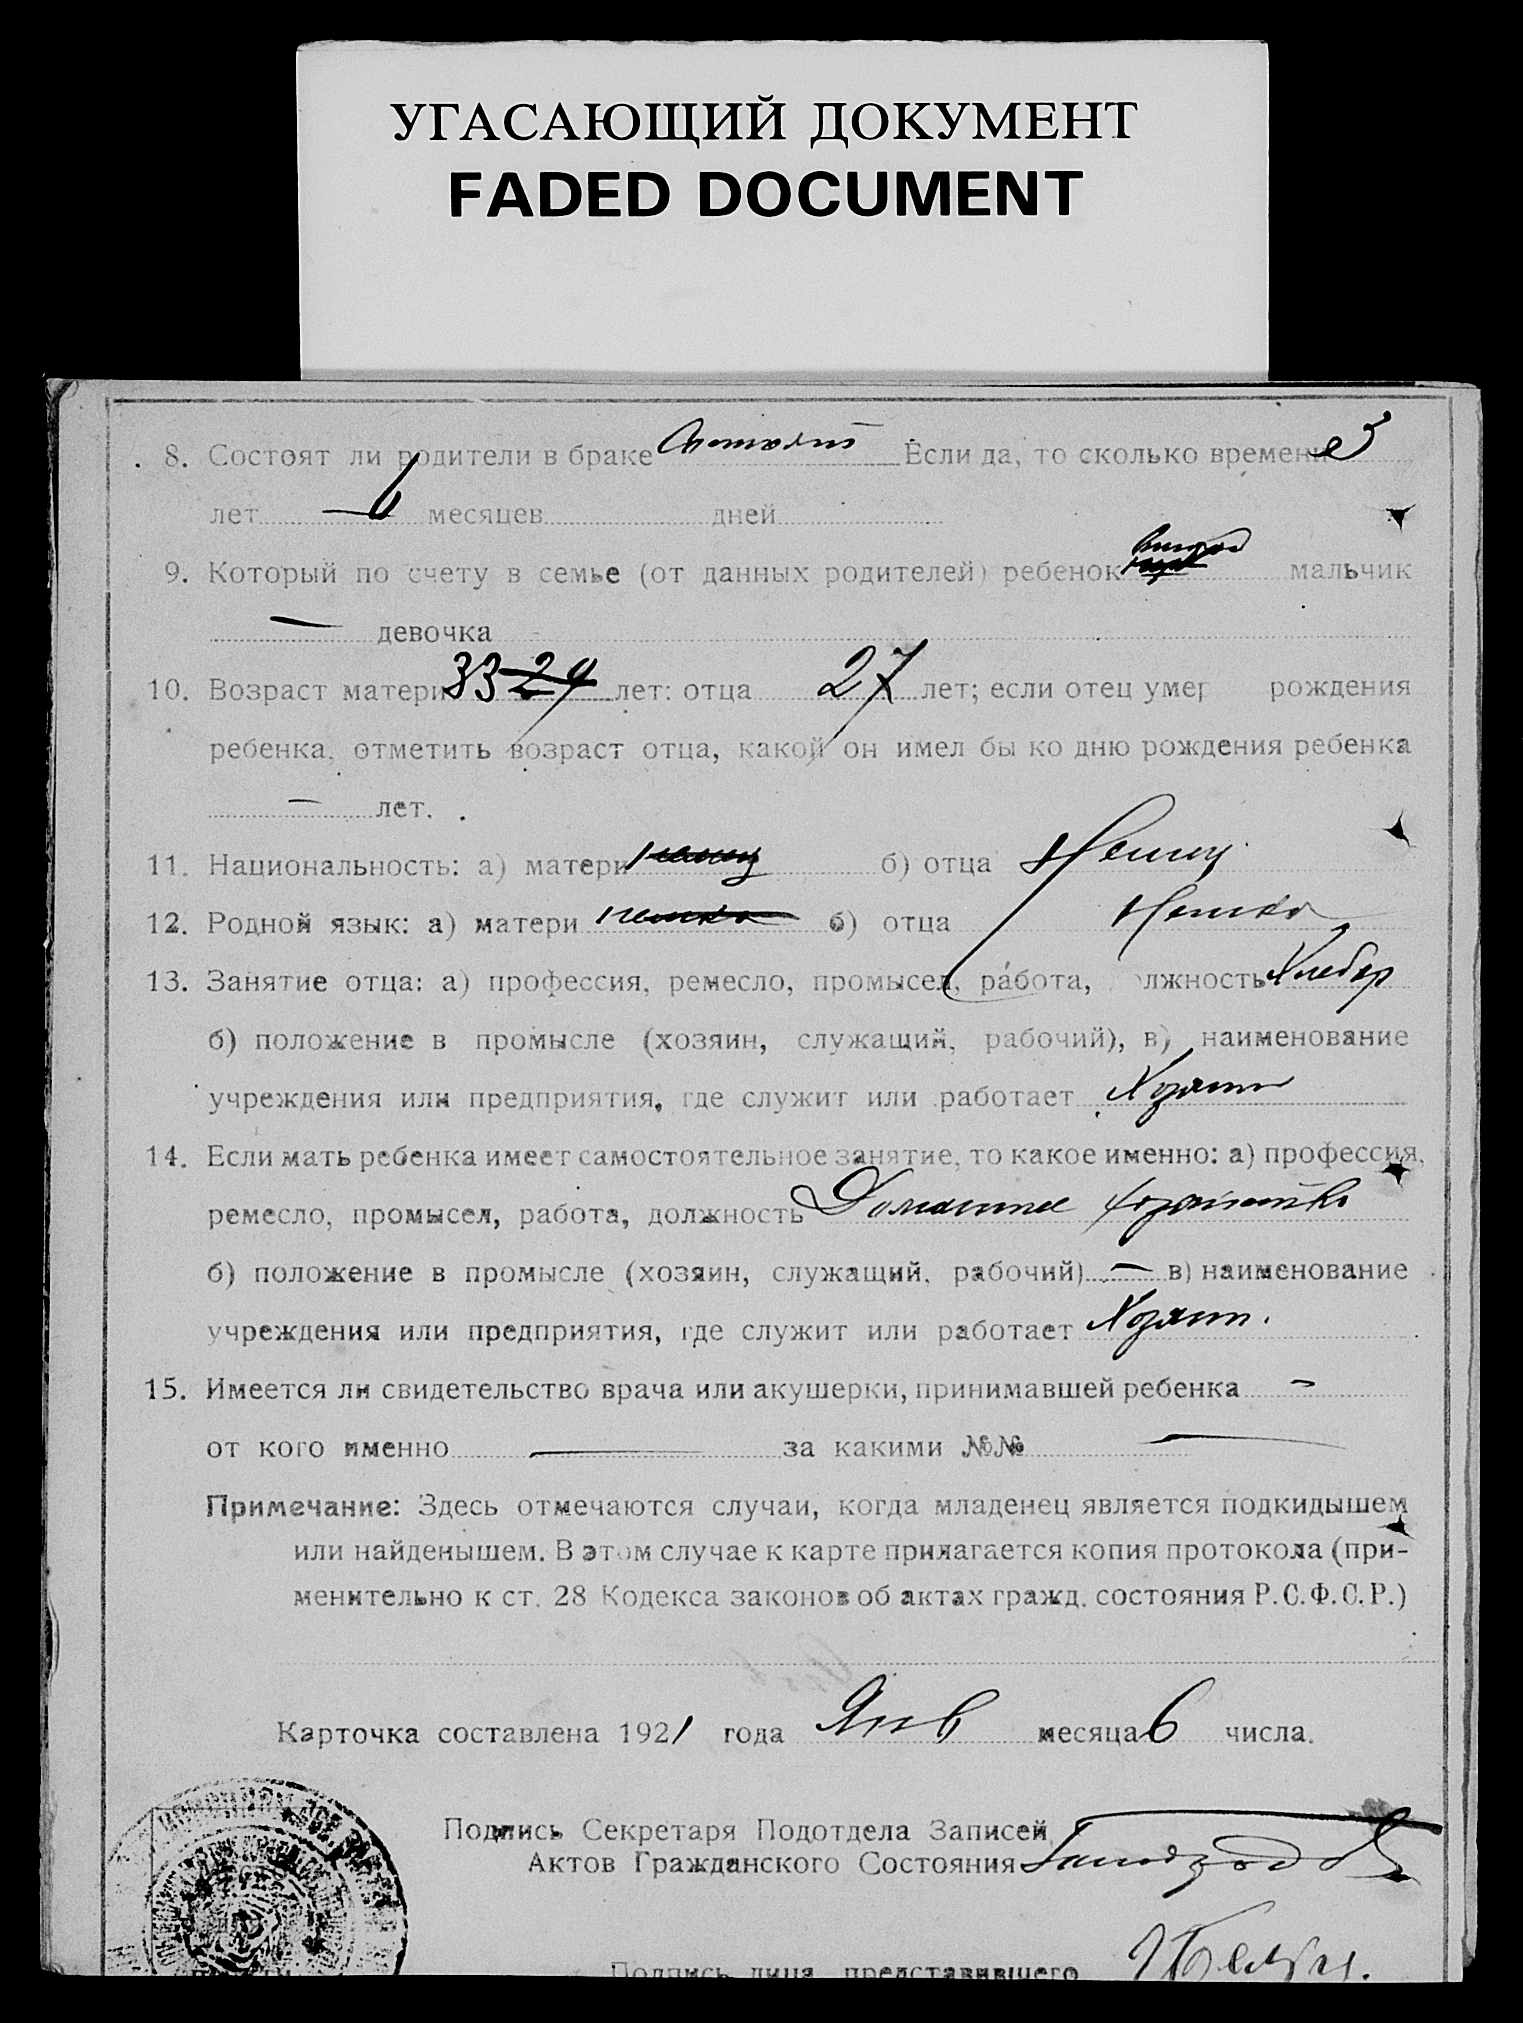 УГАСАЮЩИЙ ДОКУМЕНТ
FADED DOCUMENT
8. Состоят ли родители в браке Если да, то сколько времени 3
лет 6 месяцев дней
9. Который по счету в семье (от данных родителей) ребенок второй мальчик
— девочка
10. Возраст матери 33 29 лет: отца 27 лет; если отец умер рождения
ребенка, отметить возраст отца, какой он имел бы ко дню рождения ребенка
— лет.
11. Национальность: а) матери немец б) отца Немец
12. Родной язык: а) матери немка б) отца Немка
13. Занятие отца: а) профессия, ремесло, промысел, работа, должность Хлебор
б) положение в промысле (хозяин, служащий, рабочий), в) наименование
учреждения или предприятия, где служит или работает Хозяин
14. Если мать ребенка имеет самостоятельное занятие, то какое именно: а) профессия,
ремесло, промысел, работа, должность Домашнее хозяйство
б) положение в промысле (хозяин, служащий, рабочий) — в) наименование
учреждения или предприятия, где служит или работает Хозяин.
15. Имеется ли свидетельство врача или акушерки, принимавшей ребенка —
от кого именно — за какими №№ —
Примечание: Здесь отмечаются случаи, когда младенец является подкидышем
или найденышем. В этом случае к карте прилагается копия протокола (при-
менительно к ст. 28 Кодекса законов об актах гражд. состояния Р.С.Ф.С.Р.)
Карточка составлена 1921 года Янв месяца 6 числа.
Подпись Секретаря Подотдела Записей
Актов Гражданского Состояния
Подпись лица, представившего